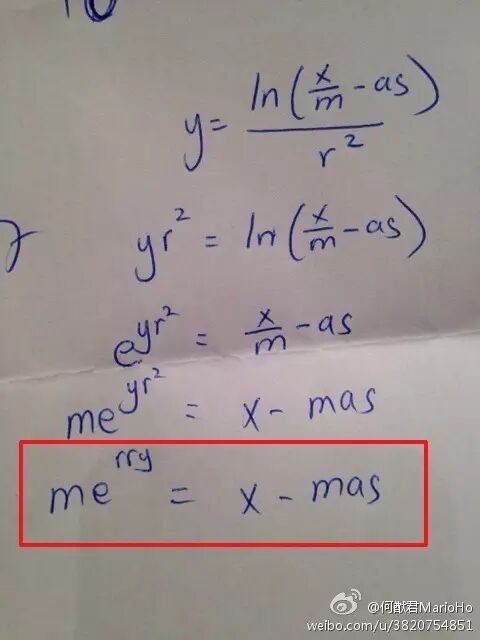 y = ln(x/m - as) / r²
yr² = ln(x/m - as)
e^yr² = x/m - as
me^yr² = x - mas
me^rry = x - mas
@何猷君MarioHo
weibo.com/u/3820754851